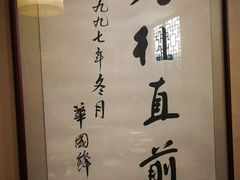 往直前
九九七年冬月
華國鋒